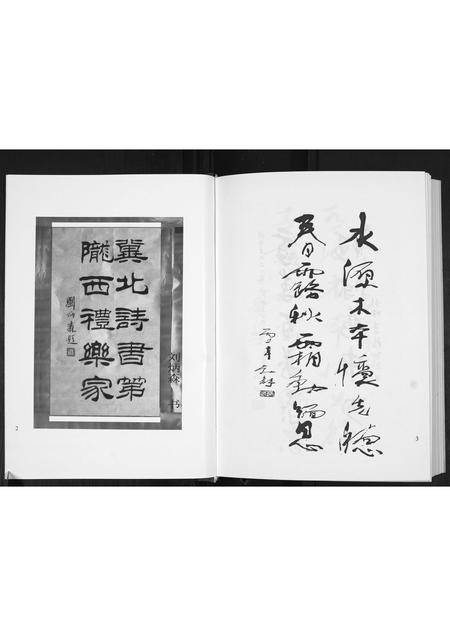 冀北詩書第
隴西禮樂家
劉炳森題
刘炳森 书
2
水源木本懷先德
春露秋霜動緬思
3